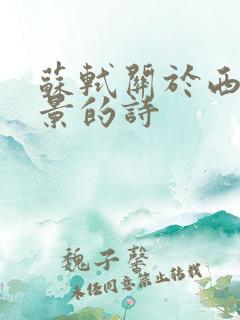 蘇軾關於西
景的詩
魏子馨
未經同意禁止轉載